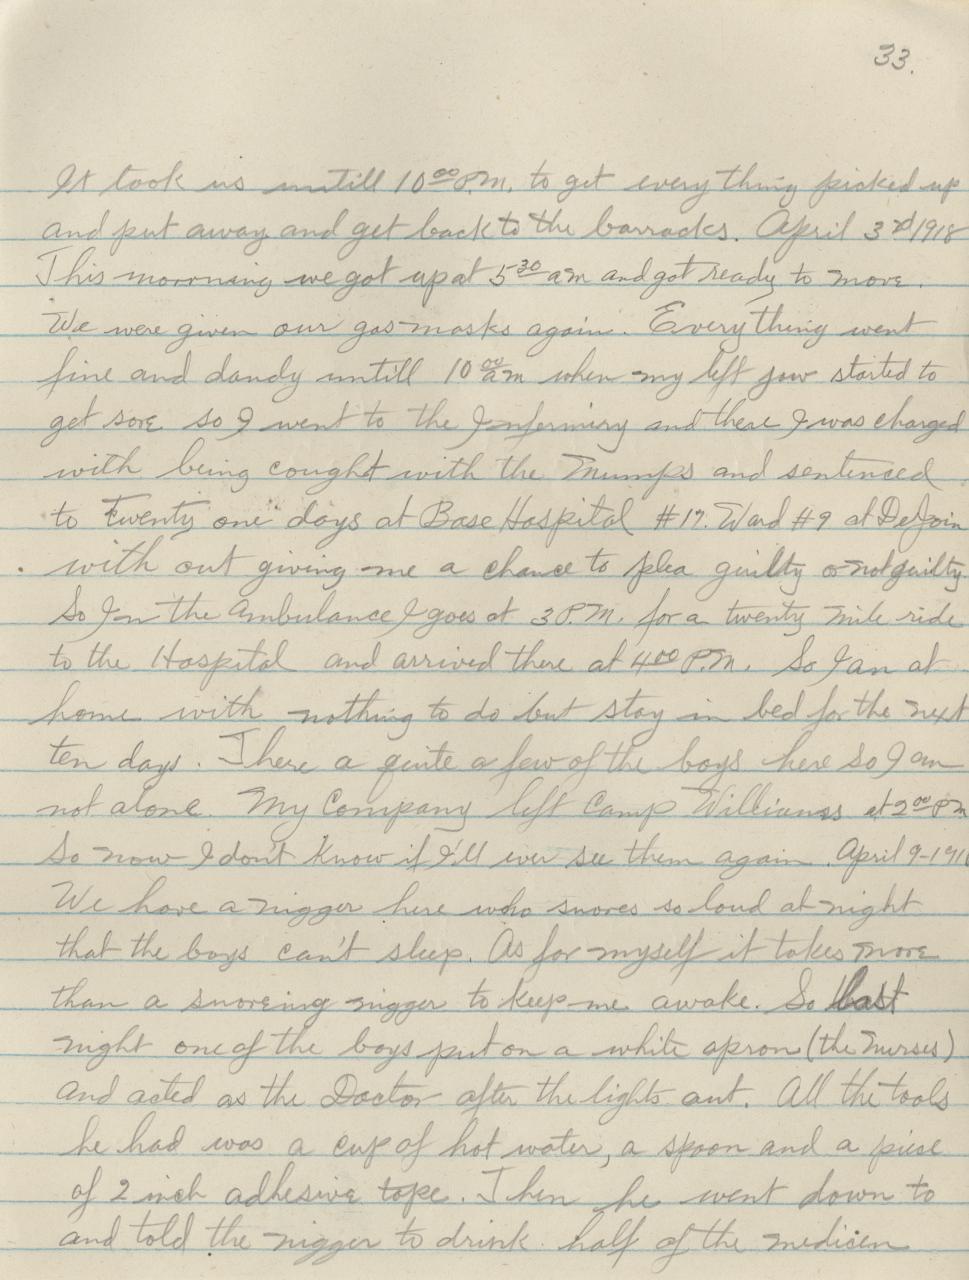 33.
It took us untill 10 00 P.M. to get everything picked up
and put away and get back to the barracks. April 3rd 1918
This morrning we got up at 5 30 am and got ready to move.
We were given our gas masks again. Everything went
fine and dandy untill 10 00 am when my left jaw started to
get sore so I went to the Infermiry and there I was charged
with being cought with the Mumps and sentenced
to twenty one days at Base Hospital #17. Ward #9 at DeJoin
with out giving me a chance to plea guilty or not guilty.
So In the Ambulance I goes at 3 P.M. for a twenty mile ride
to the Hospital and arrived there at 4 00 P.M. So I am at
home with nothing to do but stay in bed for the next
ten days. There a quite a few of the boys here so I am
not alone. My Company left Camp Williams at 2 00 PM
So now I don't know if I'll ever see them again. April 9-191
We have a nigger here who snores so loud at night
that the boys can't sleep. As for myself it takes more
than a snoreing nigger to keep me awake. So last
night one of the boys put on a white apron (the Nurses)
and acted as the Doctor after the lights out. All the tools
he had was a cup of hot water, a spoon and a piese
of 2 inch adhesive tape. Then he went down to
and told the nigger to drink half of the medicen